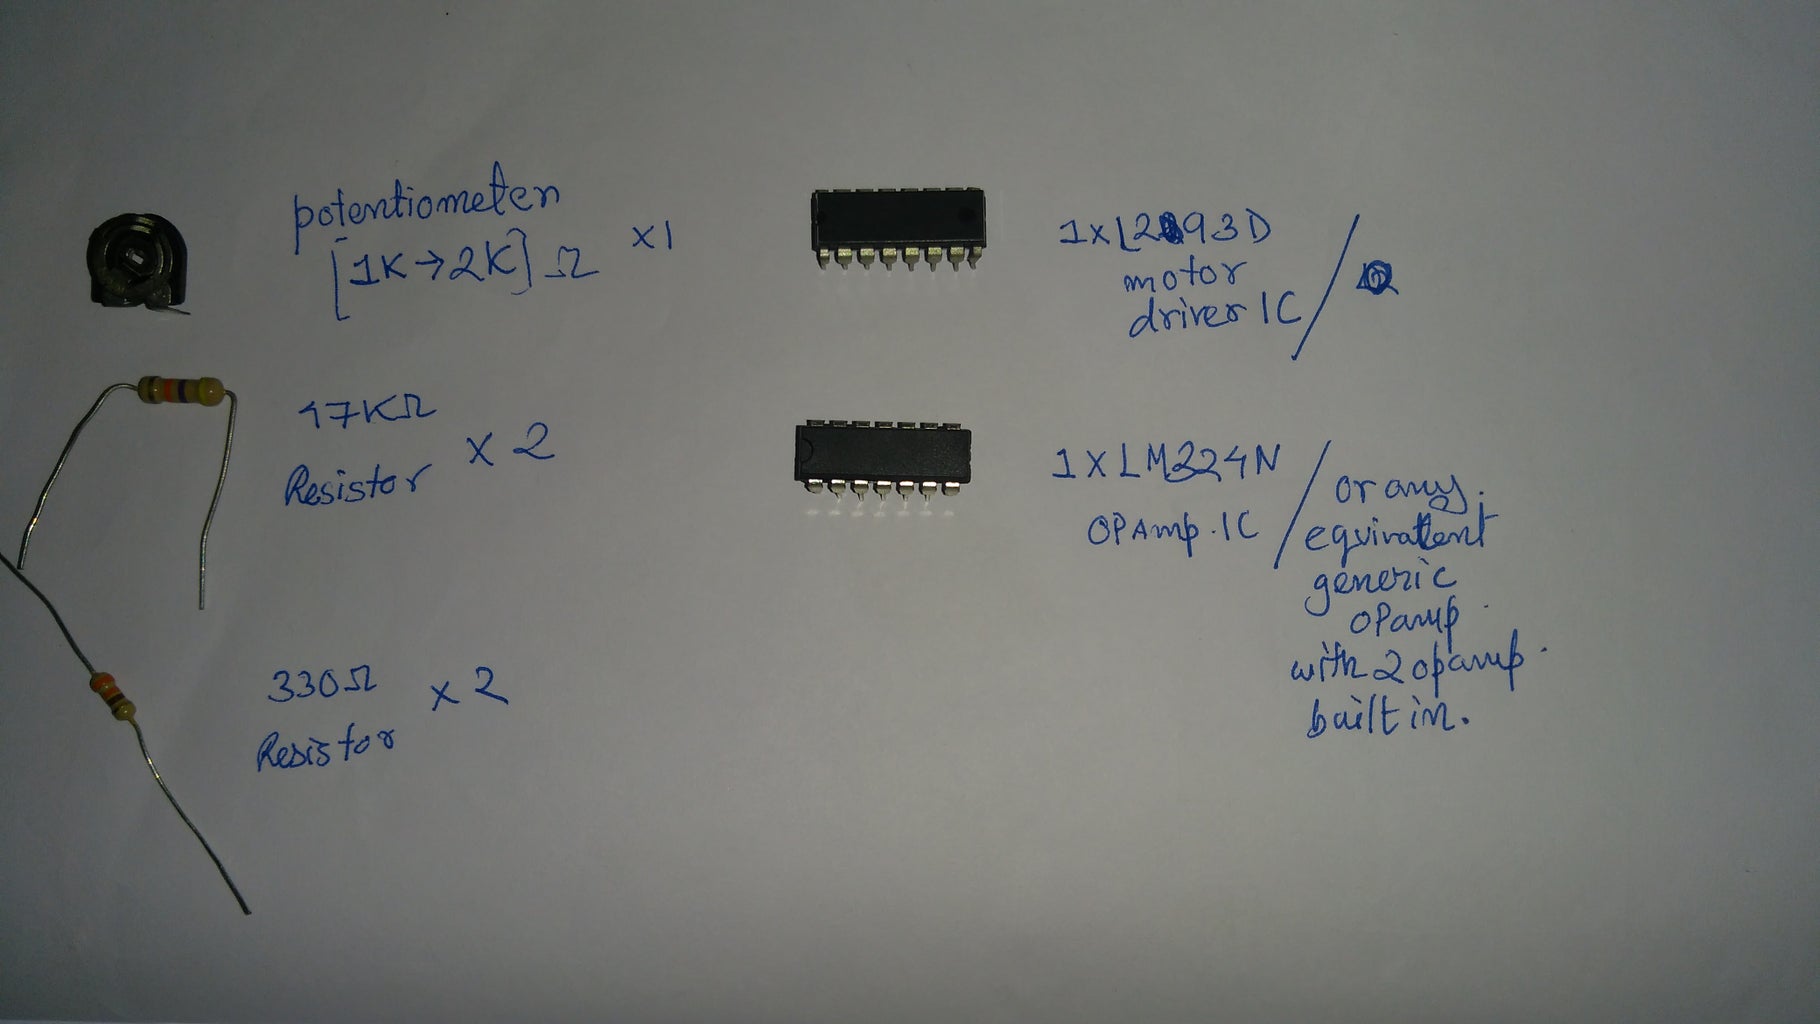 potentiometer
[1K→2K]Ω x1
47KΩ
Resistor x 2
330Ω
Resistor x 2
1xL293D
motor
driver IC /
1 x LM224N
OPAmp. IC / or any.
equivalent
generic
OPamp
with 2 opamp.
built in.